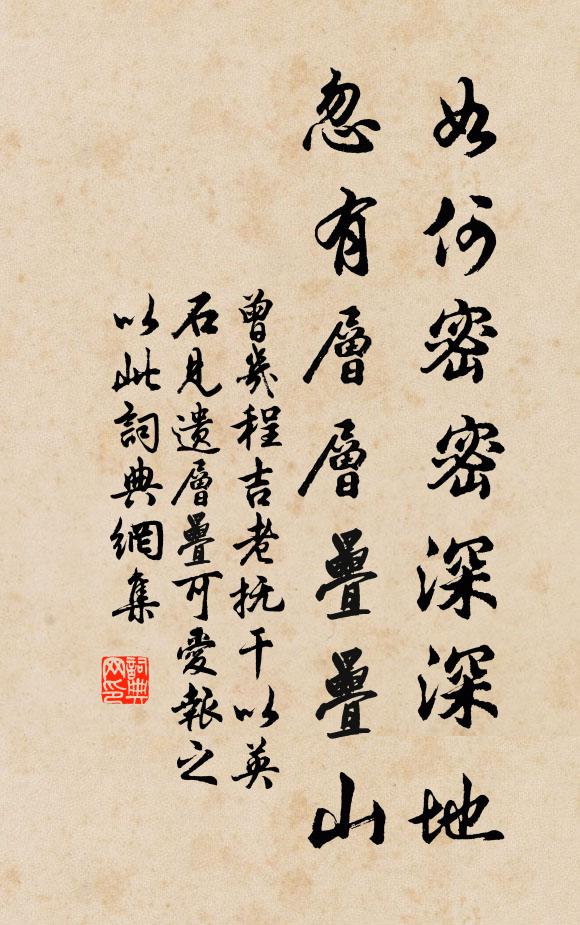 如何密密深深地
忽有層層疊疊山
曾幾程吉老抚干以英
石見遺層疊可愛報之
以此詞典網集
詞典
网印